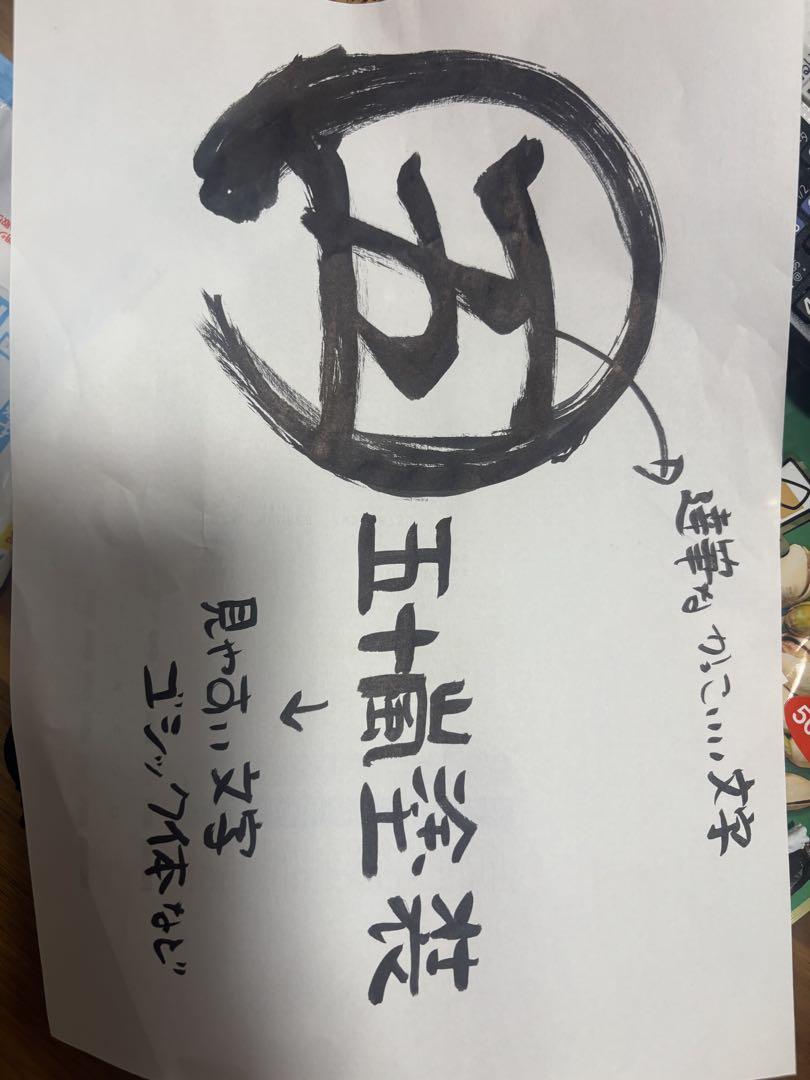 五
達筆な かっこいい文字
五十嵐塗装
↓
見やすい文字
ゴシック体など